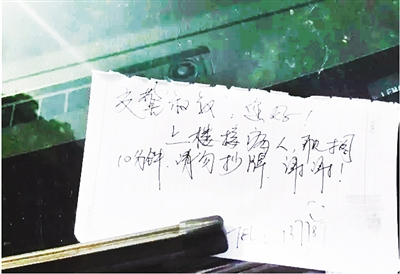 交警叔叔，您好！
上楼接病人，耽搁
10分钟，请勿抄牌，谢谢！
TEL：13778